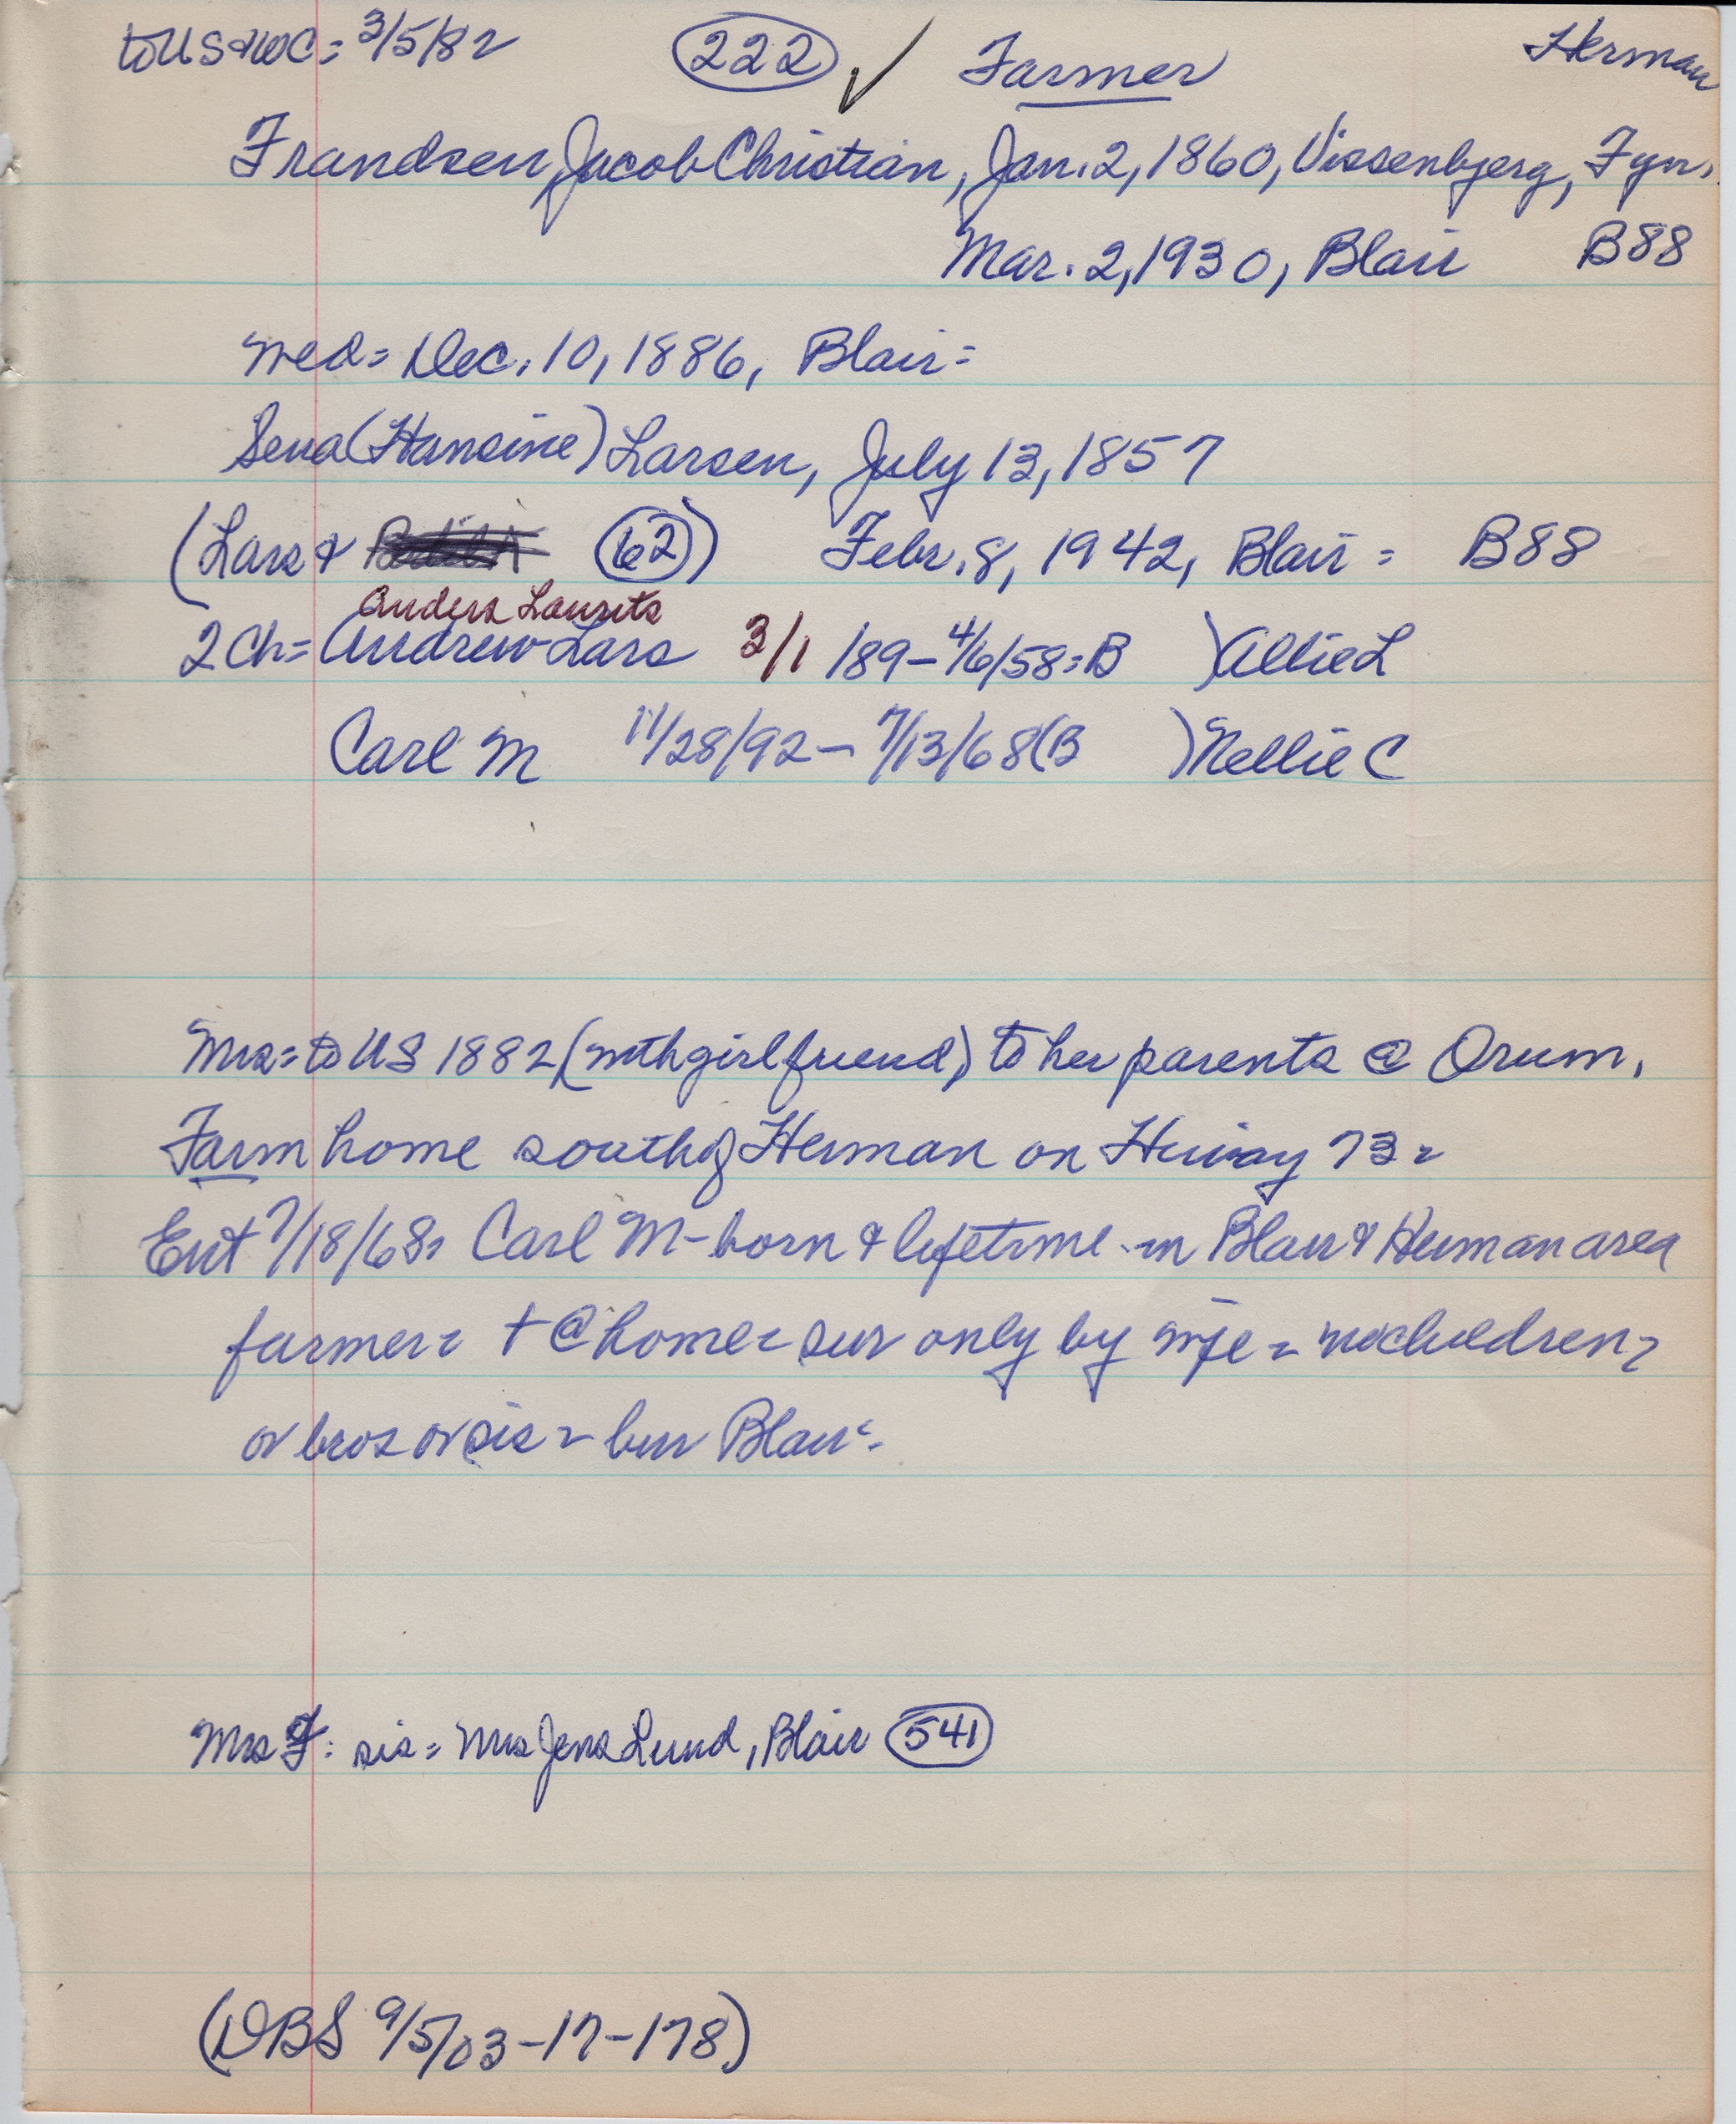 to US & WC = 3/5/82 (222) ✓ Farmer Herman
Frandsen, Jacob Christian, Jan. 2, 1860, Vissenbjerg, Fyn.
Mar. 2, 1930, Blair B88
Wed = Dec. 10, 1886, Blair =
Sena (Hansine) Larsen, July 13, 1857
(Lars & (62)) Febr. 8, 1942, Blair = B88
Anders Laurits
2 Ch = Andrew Lars 3/1/89 - 4/6/58 = B ) Allie L
Carl M 11/28/92 - 7/13/68 (B ) Nellie C
Mrs = to US 1882 (with girl friend) to her parents @ Orum.
Farm home south of Herman on Hiway 73 =
Ent 7/18/68 = Carl M - born & lifetime in Blair & Herman area
farmer = † @ home = sur only by wife = no children =
or bros or sis = bur Blair =
Mrs F: sis = Mrs Jens Lund, Blair (541)
(DBS 9/5/03-17-178)